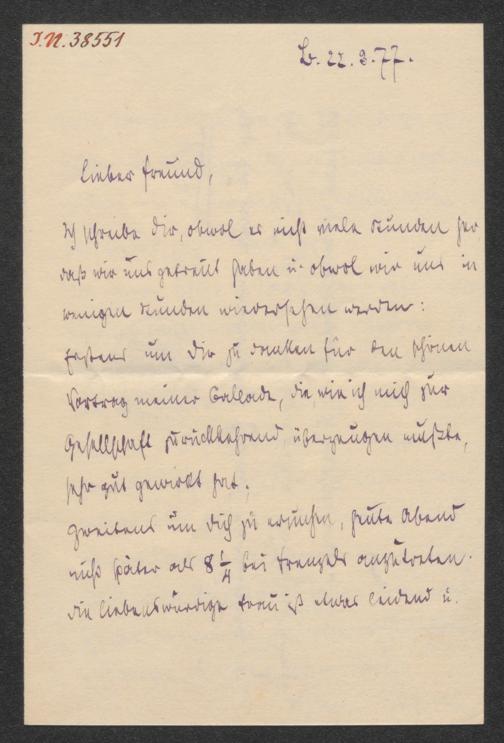 I.N. 38551
B. 22. 3. 77.
Lieber Freund,
Ich schreibe Dir, obwol es nicht viele Stunden her
daß wir uns getrennt haben u. obwol wir uns in
wenigen Stunden wiedersehen werden:
Erstens um Dir zu danken für den schönen
Vortrag meiner Ballade, die, wie ich mich zur
Gesellschaft zurückkehrend, überzeugen mußte,
sehr gut gewirkt hat;
Zweitens um Dich zu ersuchen, heute Abend
nicht später als 8 1/4 bei Frenzels anzutreten.
Die liebenswürdige Frau ist etwas leidend u.